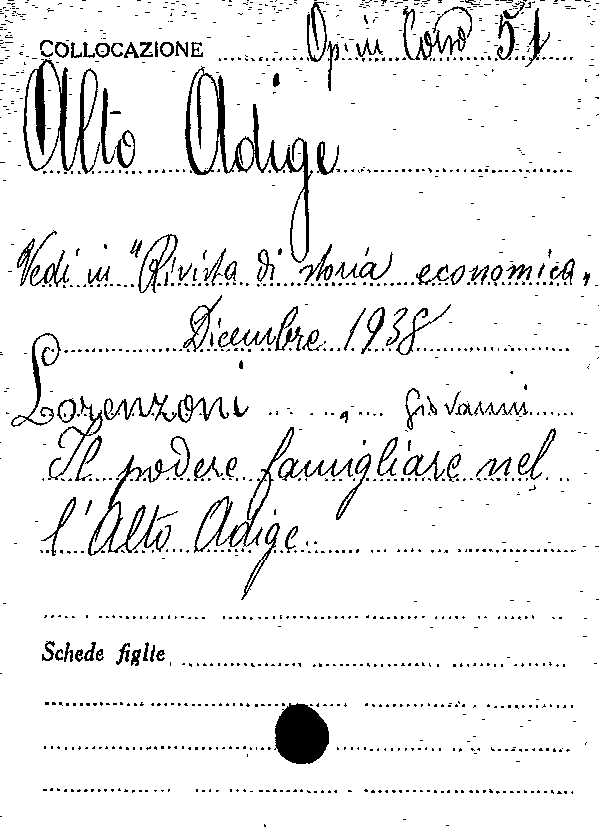 COLLOCAZIONE Op. in Corso 51
Alto Adige
Vedi in "Rivista di storia economica"
Dicembre 1938
Lorenzoni , Giovanni
Il podere famigliare nel
l'Alto Adige
Schede figlie